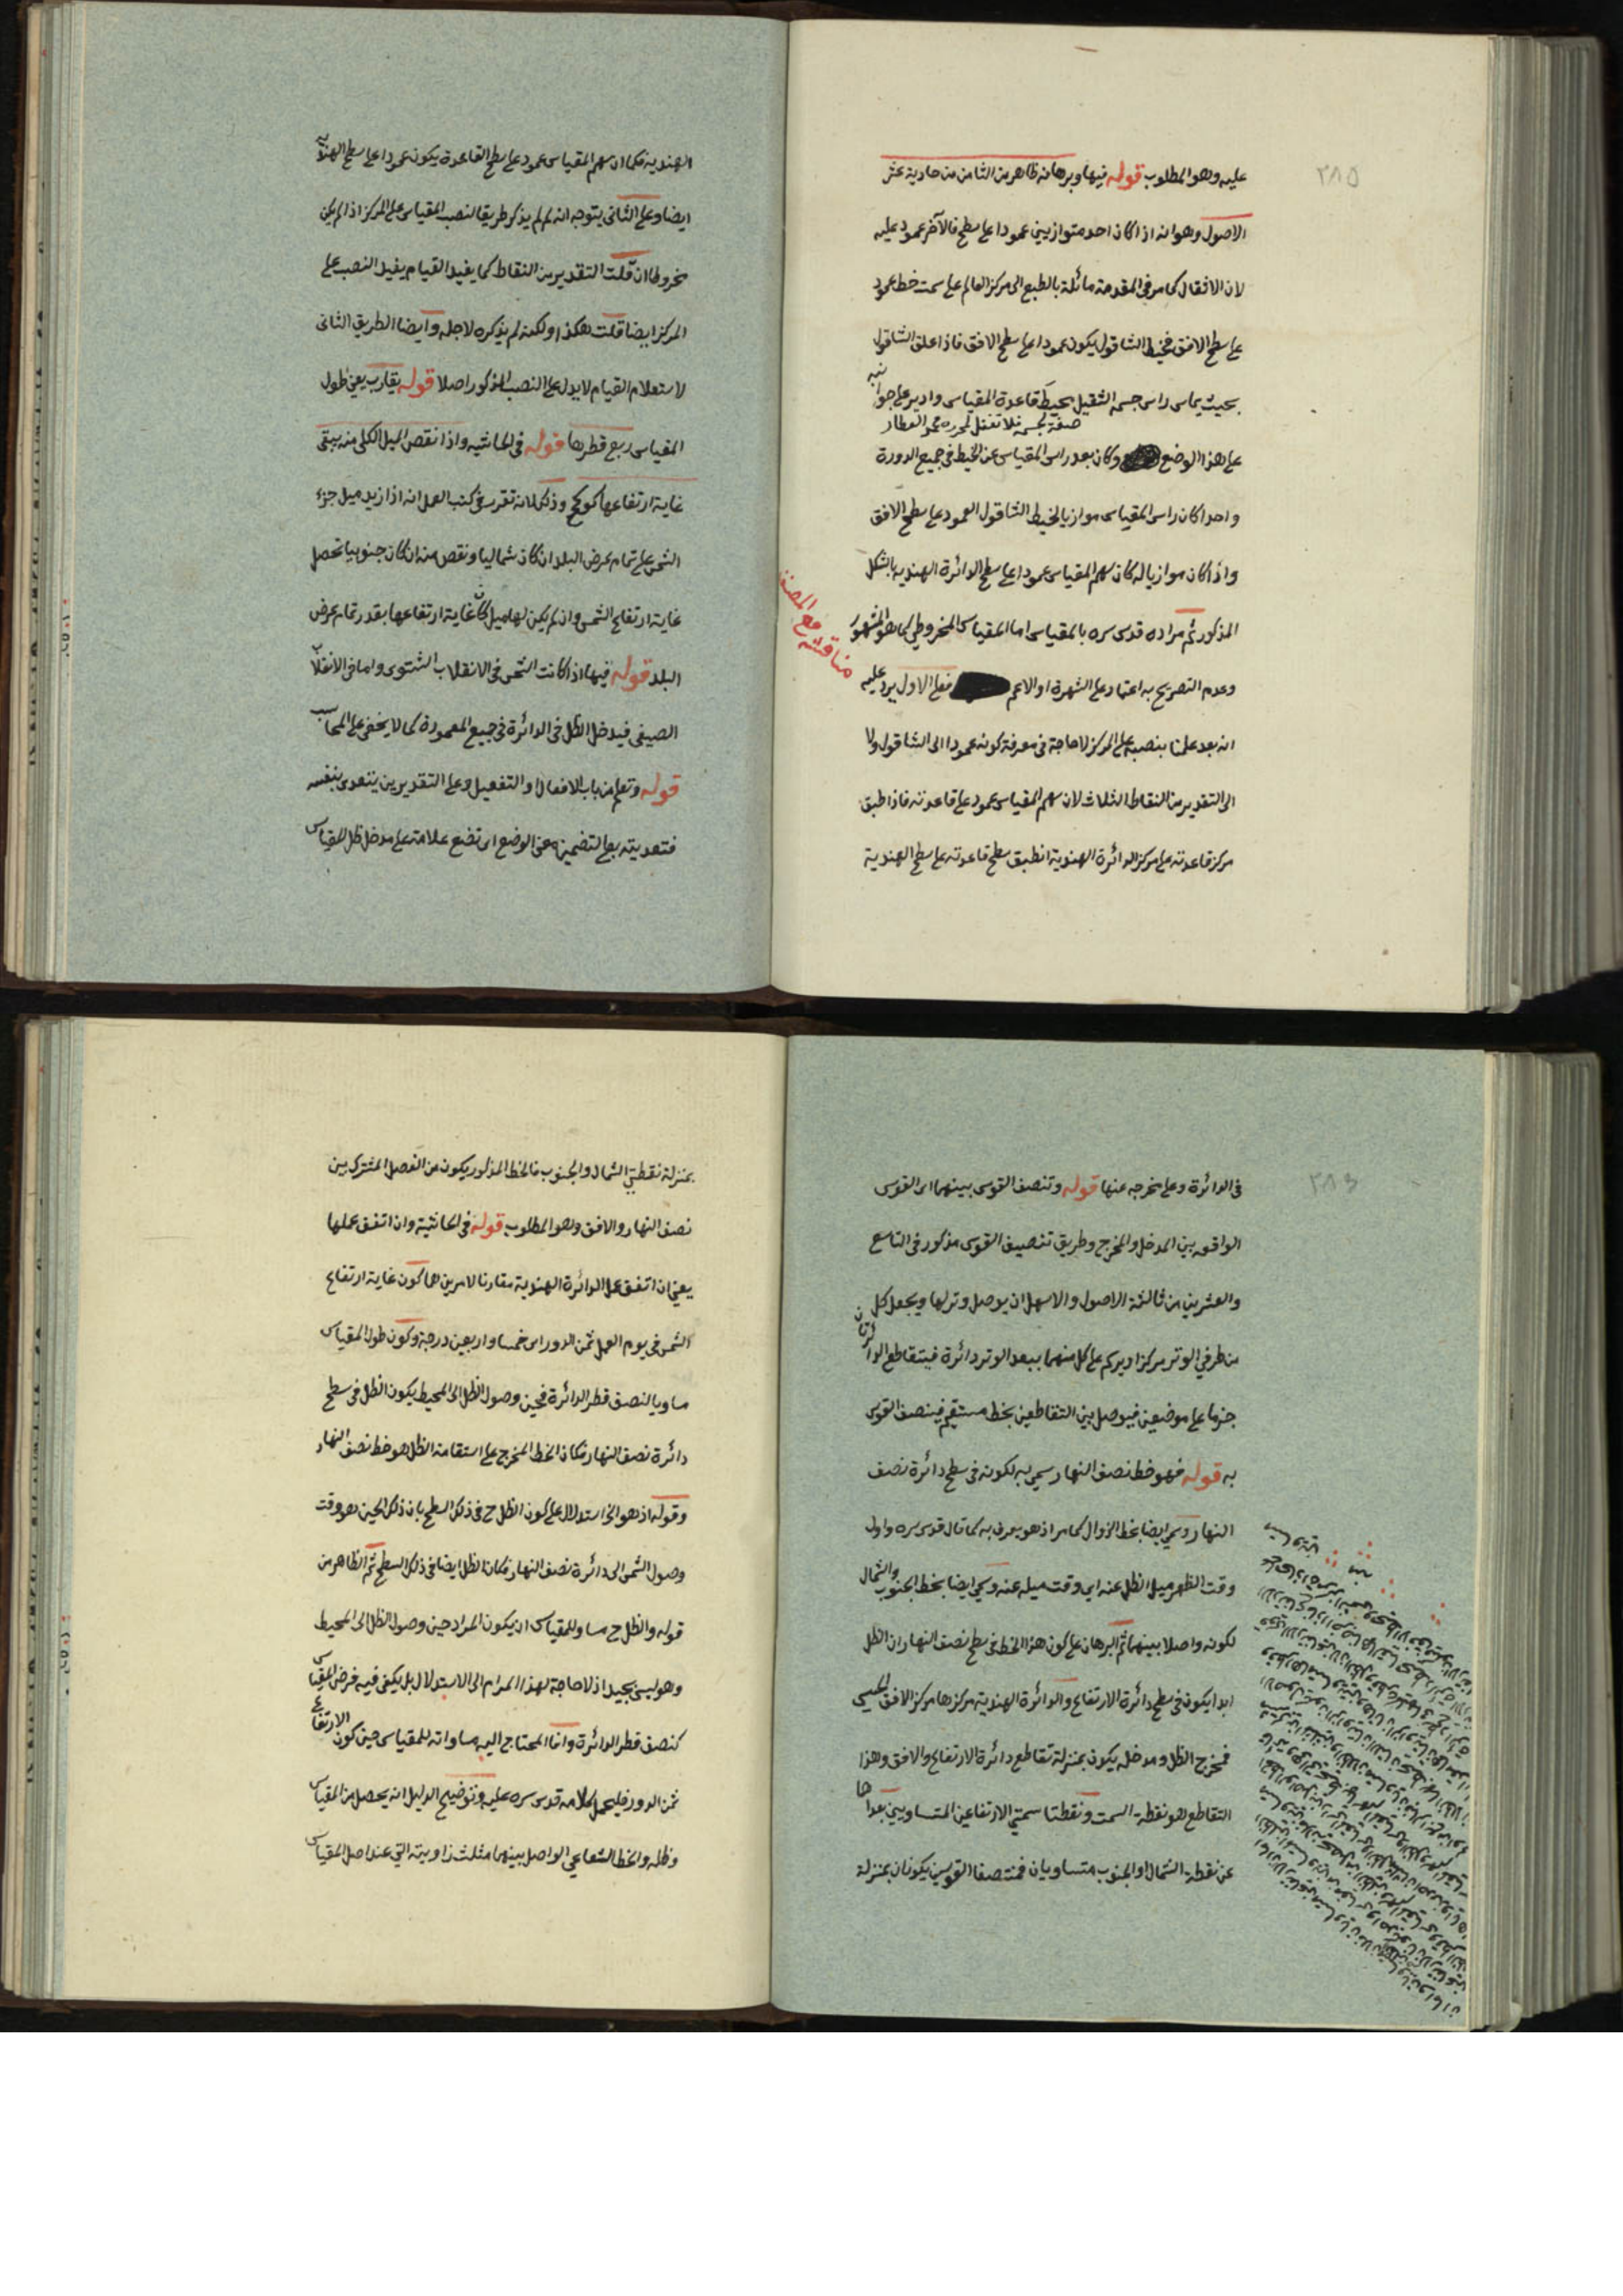 ٢٨٥
عليه وهو المطلوب قوله فيها وبرهانه ظاهر من الثامن من حادية عشر
الاصول وهو انه اذا كان احد متوازيين عمودا على سطح فالآخر عمود عليه
لان الاثقال كما مر في المقدمة مائلة بالطبع الى مركز العالم على سمت خط عمود
على سطح الافق فخيط الشاقول يكون عمودا على سطح الافق فاذا علق الشاقول
بحيث يماس راس جسمه الثقيل محيط قاعدة المقياس وادير على جوانبه
صفة لجسمه فلا تغفل لمحرره محمد العطار
على هذا الوضع وكان بعد راس المقياس عن الخيط في جميع الدورة
واحدا كان راس المقياس موازيا لخيط الشاقول العمود على سطح الافق
واذا كان موازيا له كان سهم المقياس عمودا على سطح الدائرة الهندية بالشكل
المذكور ثم مراده قدس سره بالمقياس اما المقياس المخروطي كما هو المشهور
مناقشة مع المصنف
وعدم التصريح به اعتماد على الشهرة او الاعم فعلى الاول يرد عليه
انه بعد علمنا بنصبه على المركز لا حاجة في معرفة كونه عمودا الى الشاقول ولا
الى التقدير من النقاط الثلاث لان سهم المقياس عمود على قاعدته فاذا طبق
مركز قاعدته على مركز الدائرة الهندية انطبق سطح قاعدته على سطح الهندية
الهندية فكما ان سهم المقياس عمود على سطح القاعدة يكون عمودا على سطح الهندية
ايضا وعلى الثاني يتوجه انه لم لم يذكر طريقا لنصب المقياس على المركز اذا لم يكن
مخروطا ان قلت التقدير من النقاط كما يفيد القيام يفيد النصب على
المركز ايضا قلت هكذا ولكنه لم يذكره لاجله وايضا الطريق الثاني
لاستعلام القيام لا يدل على النصب المذكور اصلا قوله يقارب يعني طول
المقياس ربع قطرها قوله في الحاشيه واذا نقص الميل الكلي منه يبقى
غاية ارتفاعها كو كح وذلك لانه تقرر في كتب العمل انه اذا زيد ميل جزء
الشمس على تمام عرض البلد ان كان شماليا ونقص منه ان كان جنوبيا تحصل
غاية ارتفاع الشمس وان لم يكن لها ميل كان غاية ارتفاعها بقدر تمام عرض
البلد قوله فيها اذا كانت الشمس في الانقلاب الشتوى واما في الانقلاب
الصيفي فيدخل الظل في الدائرة في جميع المعمورة كما لا يخفى على المحاسب
قوله وتعلم من باب الافعال او التفعيل وعلى التقديرين يتعدى بنفسه
فتعديته بعلى لتضمينه معنى الوضع اى تضع علامة على مدخل ظل المقياس
في الدائرة وعلى مخرجه عنها قوله وتنصف القوس بينهما اى القوس
الواقعه بين المدخل والمخرج وطريق تنصيف القوس مذكور في التاسع
والعشرين من ثالثة الاصول والاسهل ان يوصل وترلها ويجعل كل
من طرفي الوتر مركزا ويرسم على كل منهما ببعد الوتر دائرة فيتقاطع الدائرتان
جزما على موضعين فيوصل بين التقاطعين بخط مستقيم فينصف القوس
به قوله فهو خط نصف النهار سمي به لكونه في سطح دائرة نصف
النهار وسمي ايضا بخط الزوال كما مر اذ هو يعرف به كما قال قدس سره واول
وقت الظهر ميل الظل عنه اي وقت ميله عنه وسمي ايضا بخط الجنوب والشمال
لكونه واصلا بينهما ثم البرهان على كون هذا الخط في سطح نصف النهار ان الظل
ابدا يكون في سطح دائرة الارتفاع والدائرة الهندية مركزها مركز الافق الحسي
فمخرج الظل ومدخله يكون بمنزلة تقاطع دائرة الارتفاع والافق وهذا
التقاطع هو نقطة السمت ونقطتا سمتي الارتفاعين المتساويين بعداهما
عن نقطة الشمال او الجنوب متساويان فمنتصفا القوسين يكونان بمنزلة
بمنزلة نقطتي الشمال والجنوب فالخط المذكور يكون من الفصل المشترك بين
نصف النهار والافق وهو المطلوب قوله في الحاشية وان اتفق عملها
يعني ان اتفق عمل الدائرة الهندية مقارنا لامرين هما كون غاية ارتفاع
الشمس في يوم العمل ثمن الدور اى خمسا واربعين درجة وكون طول المقياس
مساويا لنصف قطر الدائرة فحين وصول الظل الى المحيط يكون الظل في سطح
دائرة نصف النهار فكان الخط المخرج على استقامة الظل هو خط نصف النهار
وقوله اذ هو الخ استدلال على كون الظل ح في ذلك السطح بان ذلك الحين هو وقت
وصول الشمس الى دائرة نصف النهار فكان الظل ايضا في ذلك السطح ثم الظاهر من
قوله والظل ح مساو للمقياس ان يكون المراد حين وصول الظل الى المحيط
وهو ليس بجيد اذ لا حاجة لهذا المرام الى الاستدلال بل يكفي فيه فرض المقياس
كنصف قطر الدائرة وانما المحتاج اليه مساواته للمقياس حين كون الارتفاع
ثمن الدور فليحمل كلامه قدس سره عليه وتوضيح الدليل انه يحصل من المقياس
وظله والخط الشعاعي الواصل بينهما مثلث زاويته التي عند اصل المقياس